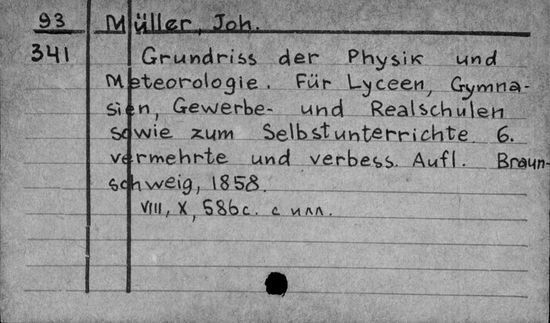 93 Müller, Joh.
341 Grundriss der Physik und
Meteorologie. Für Lyceen, Gymna-
sien, Gewerbe- und Realschulen
sowie zum Selbstunterrichte. 6.
vermehrte und verbess. Aufl. Braun-
schweig, 1858.
VIII, X, 586c. с илл.